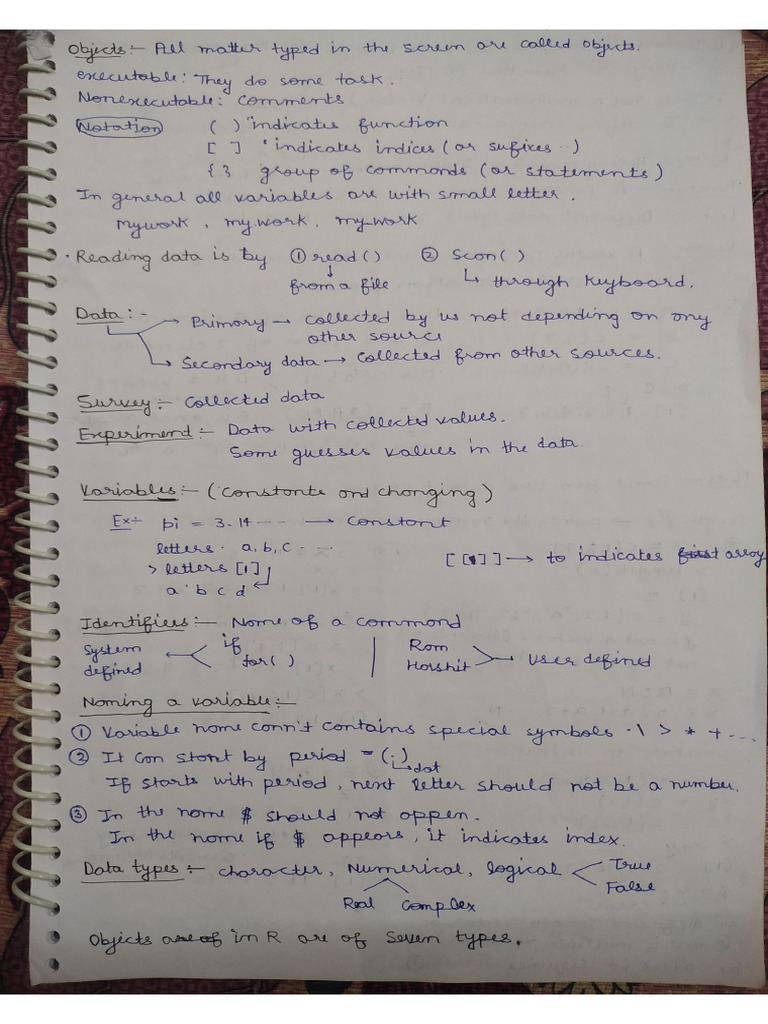 Objects:- All matter typed in the screen are called objects.
executable: They do some task.
Nonexecutable: comments
Notation ( ) indicates function
[ ] indicates indices (or sufixes)
{ } group of commands (or statements)
In general all variables are with small letter.
mywork, my.work, my_work
· Reading data is by ① read() ② Scan()
↓ ↳ through Keyboard.
from a file
Data:- → Primary → collected by us not depending on any
other source
→ Secondary data → Collected from other sources.
Survey:- Collected data
Experiment:- Data with collected values.
Some guesses values in the data.
Variables:- (Constants and changing)
Ex:- pi = 3.14 ---- → Constant
letters. a, b, c - ---
[[1]] → to indicates first array
> letters [1]
a b c d
Identifiers:- Name of a command
System defined ← if for() | Ram Harshit → User defined
Naming a variable:-
① Variable name cann't contains special symbols .\ > * + ...
② It Can start by period = (.)
↳ dot
If starts with period, next letter should not be a number.
③ In the name $ should not appen.
In the name if $ appears, it indicates index.
Data types:- character, Numerical, logical < True
False
Real Complex
Objects are of in R are of Seven types.